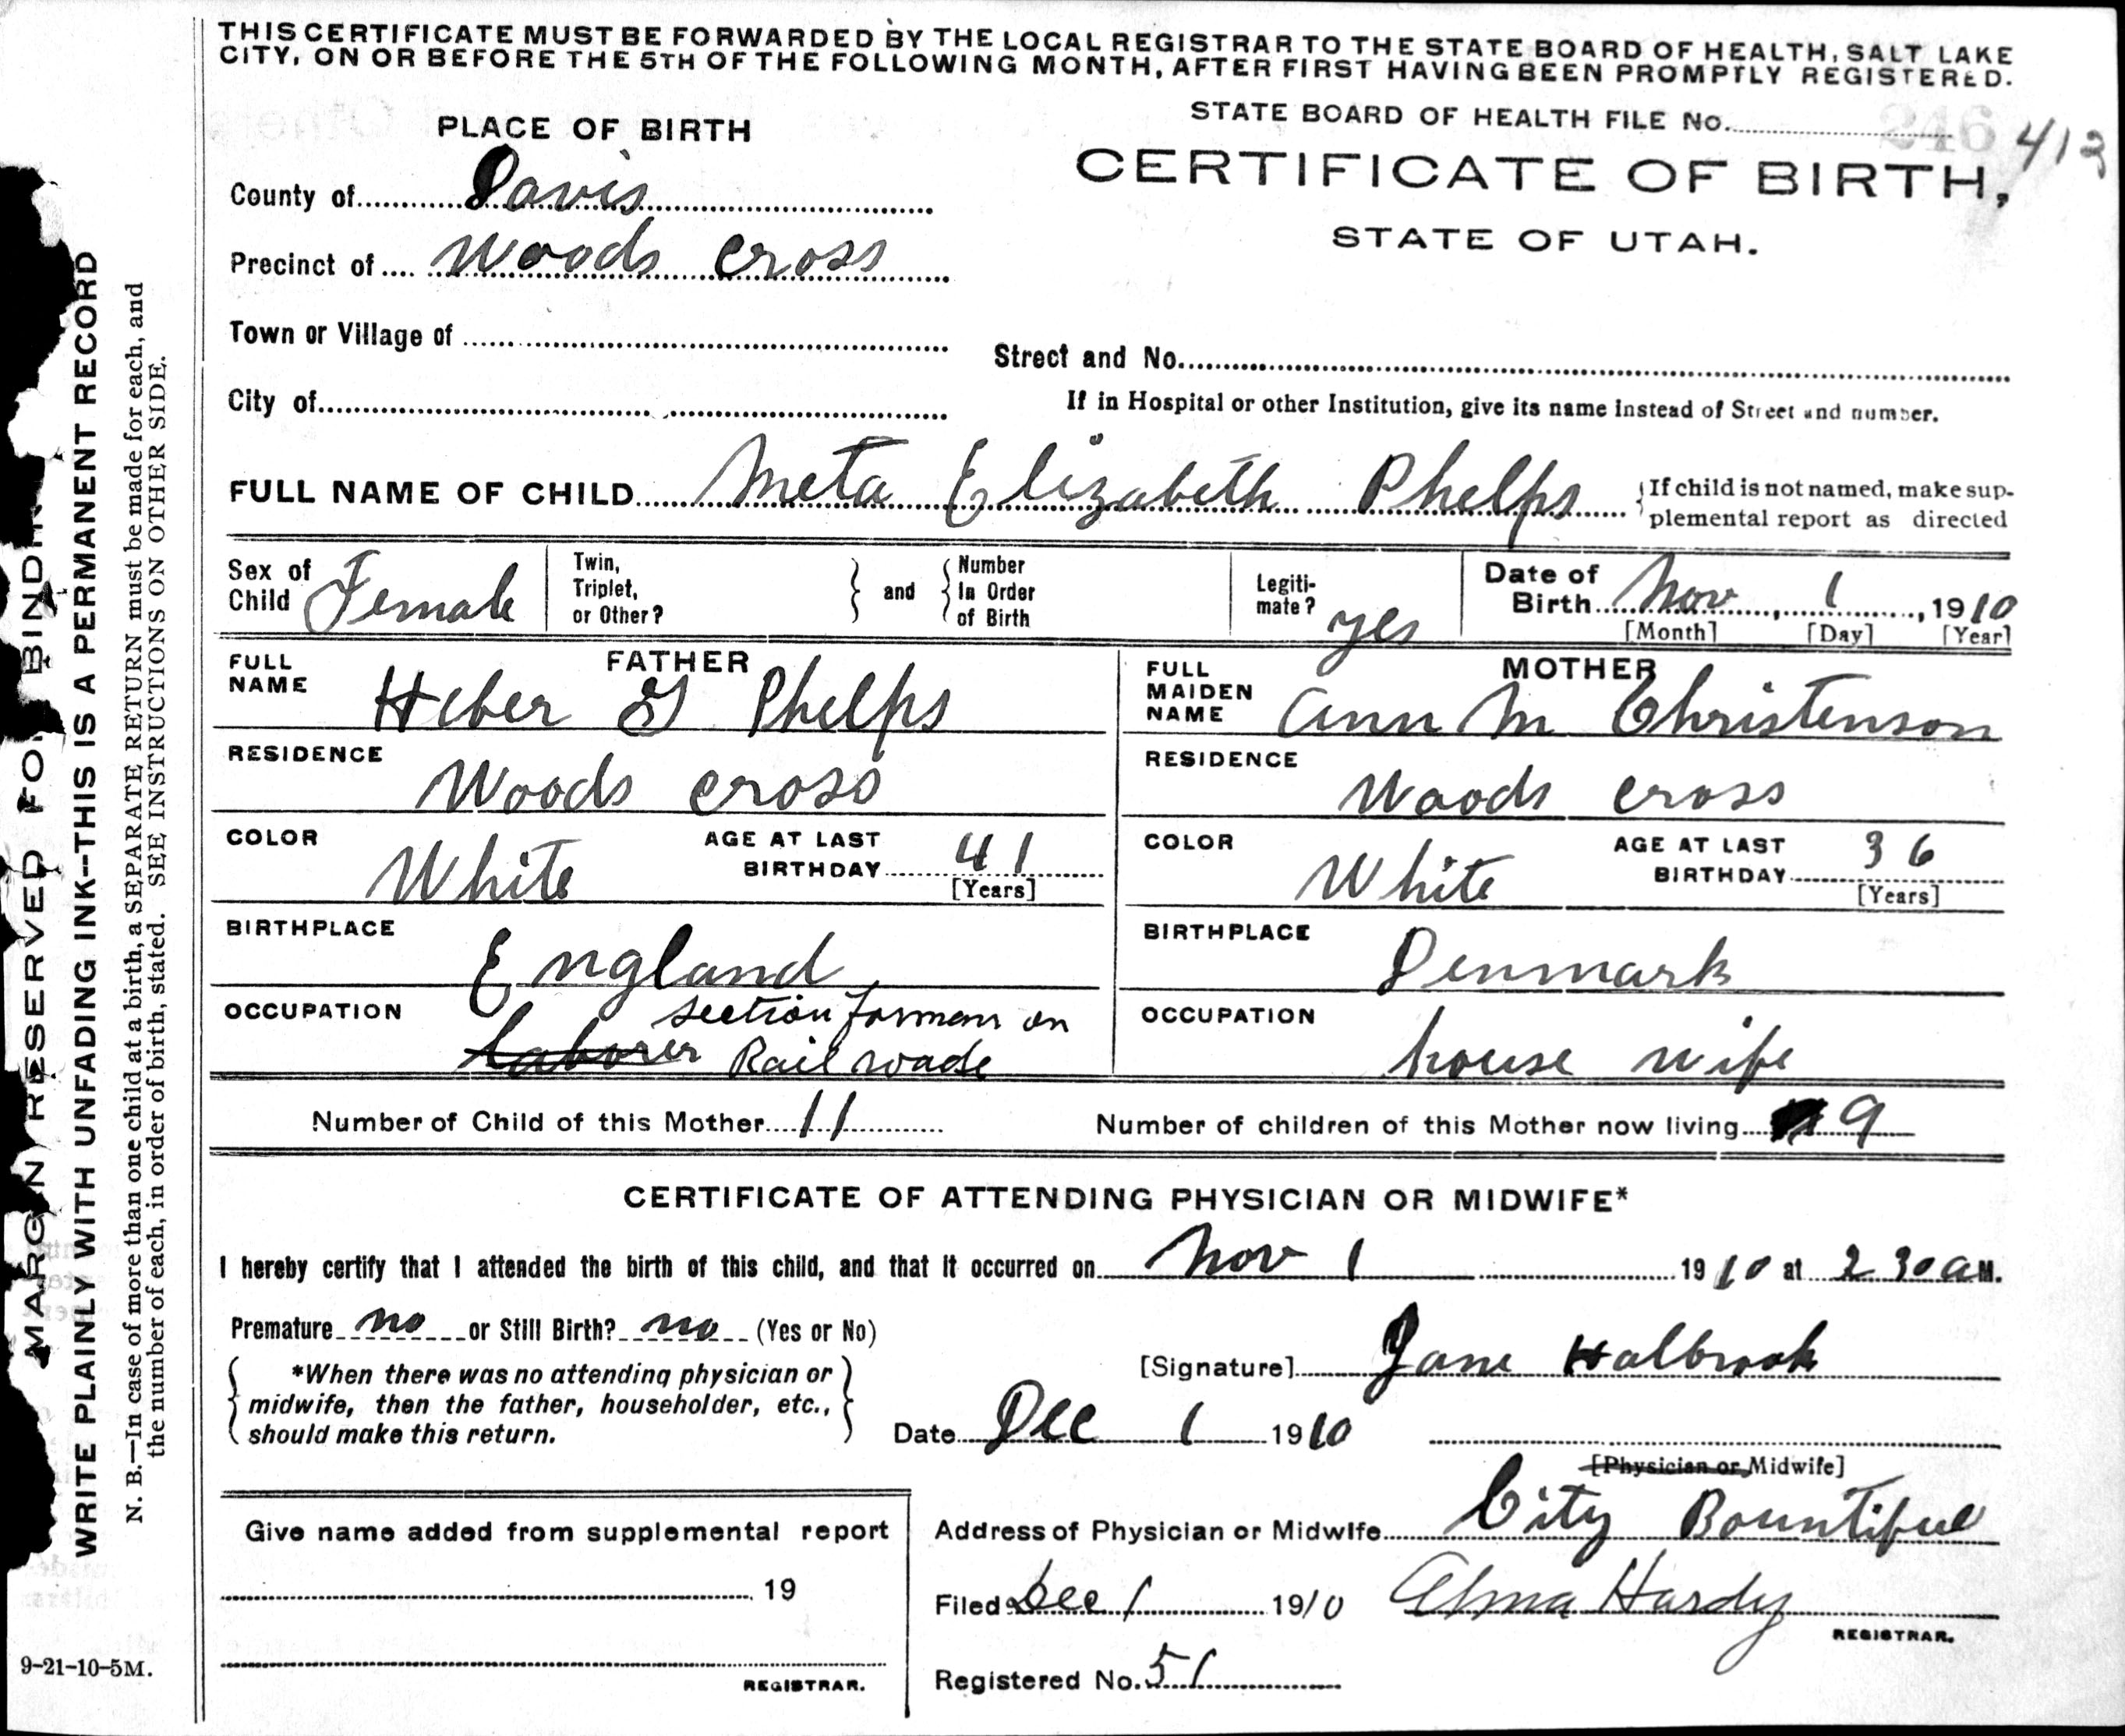 THIS CERTIFICATE MUST BE FORWARDED BY THE LOCAL REGISTRAR TO THE STATE BOARD OF HEALTH, SALT LAKE
CITY, ON OR BEFORE THE 5TH OF THE FOLLOWING MONTH, AFTER FIRST HAVING BEEN PROMPTLY REGISTERED.
PLACE OF BIRTH
STATE BOARD OF HEALTH FILE No. 246 413
CERTIFICATE OF BIRTH,
STATE OF UTAH.
County of Davis
Precinct of Woods Cross
Town or Village of
Street and No.
City of
If in Hospital or other Institution, give its name instead of Street and number.
FULL NAME OF CHILD Meta Elizabeth Phelps
If child is not named, make sup-
plemental report as directed
Sex of Child Female
Twin, Triplet, or Other?
and
Number In Order of Birth
Legiti-mate? yes
Date of Birth Nov 1, 1910
[Month] [Day] [Year]
FATHER
FULL NAME Heber G Phelps
RESIDENCE Woods cross
COLOR White
AGE AT LAST BIRTHDAY 41
[Years]
BIRTHPLACE England
OCCUPATION laborer section forman on
Rail roade
MOTHER
FULL MAIDEN NAME Ann M Christenson
RESIDENCE Woods cross
COLOR White
AGE AT LAST BIRTHDAY 36
[Years]
BIRTHPLACE Denmark
OCCUPATION house wife
Number of Child of this Mother 11
Number of children of this Mother now living 9
CERTIFICATE OF ATTENDING PHYSICIAN OR MIDWIFE*
I hereby certify that I attended the birth of this child, and that it occurred on Nov 1 1910 at 2 30 a M.
Premature no or Still Birth? no (Yes or No)
*When there was no attending physician or
midwife, then the father, householder, etc.,
should make this return.
[Signature] Jane Holbrook
Date Dec 1 1910
[Physician or Midwife]
Give name added from supplemental report
19
REGISTRAR.
Address of Physician or Midwife City Bountiful
Filed Dec 1 1910 Alma Hardy
REGISTRAR.
Registered No. 51
MARGIN RESERVED FOR BINDIN
WRITE PLAINLY WITH UNFADING INK--THIS IS A PERMANENT RECORD
N. B.—In case of more than one child at a birth, a SEPARATE RETURN must be made for each, and
the number of each, in order of birth, stated. SEE INSTRUCTIONS ON OTHER SIDE.
9-21-10-5M.